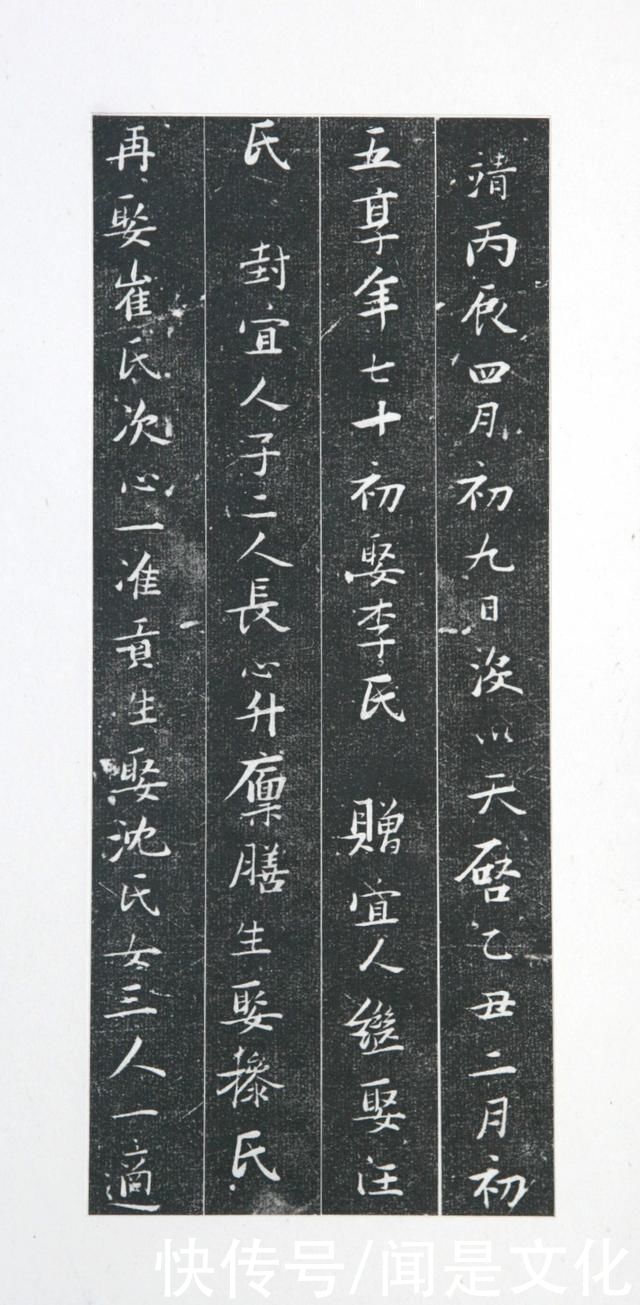 靖丙辰四月初九日沒以天啓乙丑二月初
五享年七十初娶李氏 贈宜人繼娶汪
氏 封宜人子二人長心升廩膳生娶操氏
再娶崔氏次心一准貢生娶沈氏女三人一適
快传号/闻是文化